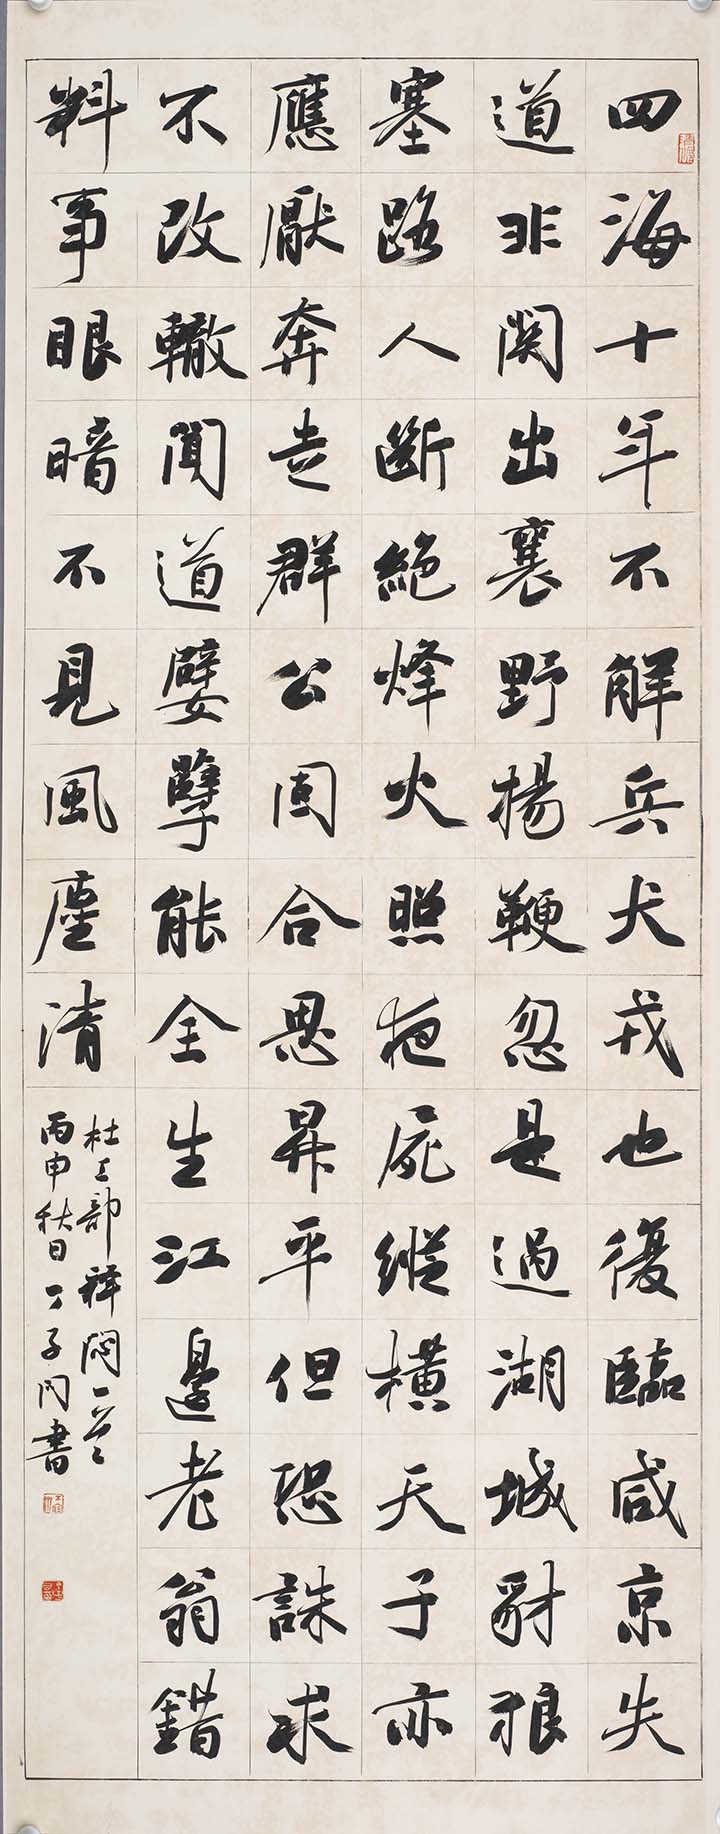 四海十年不解兵犬戎也復臨咸京失
道非関出襄野揚鞭忽是過湖城豺狼
塞路人斷絶烽火照夜屍縱橫天子亦
應厭奔走群公固合思昇平但恐誅求
不改轍聞道嬖孽能全生江邊老翁錯
料事眼暗不見風塵清
杜工部釋悶一首
丙申秋日丁子書